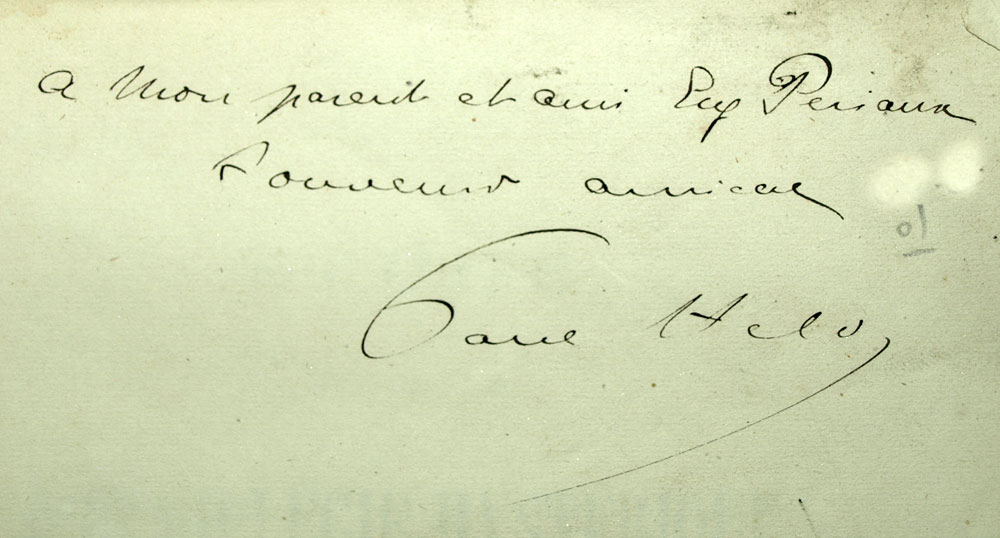 a Mon parent et ami Eug Periaux
Souvenir amical
Paul Helo